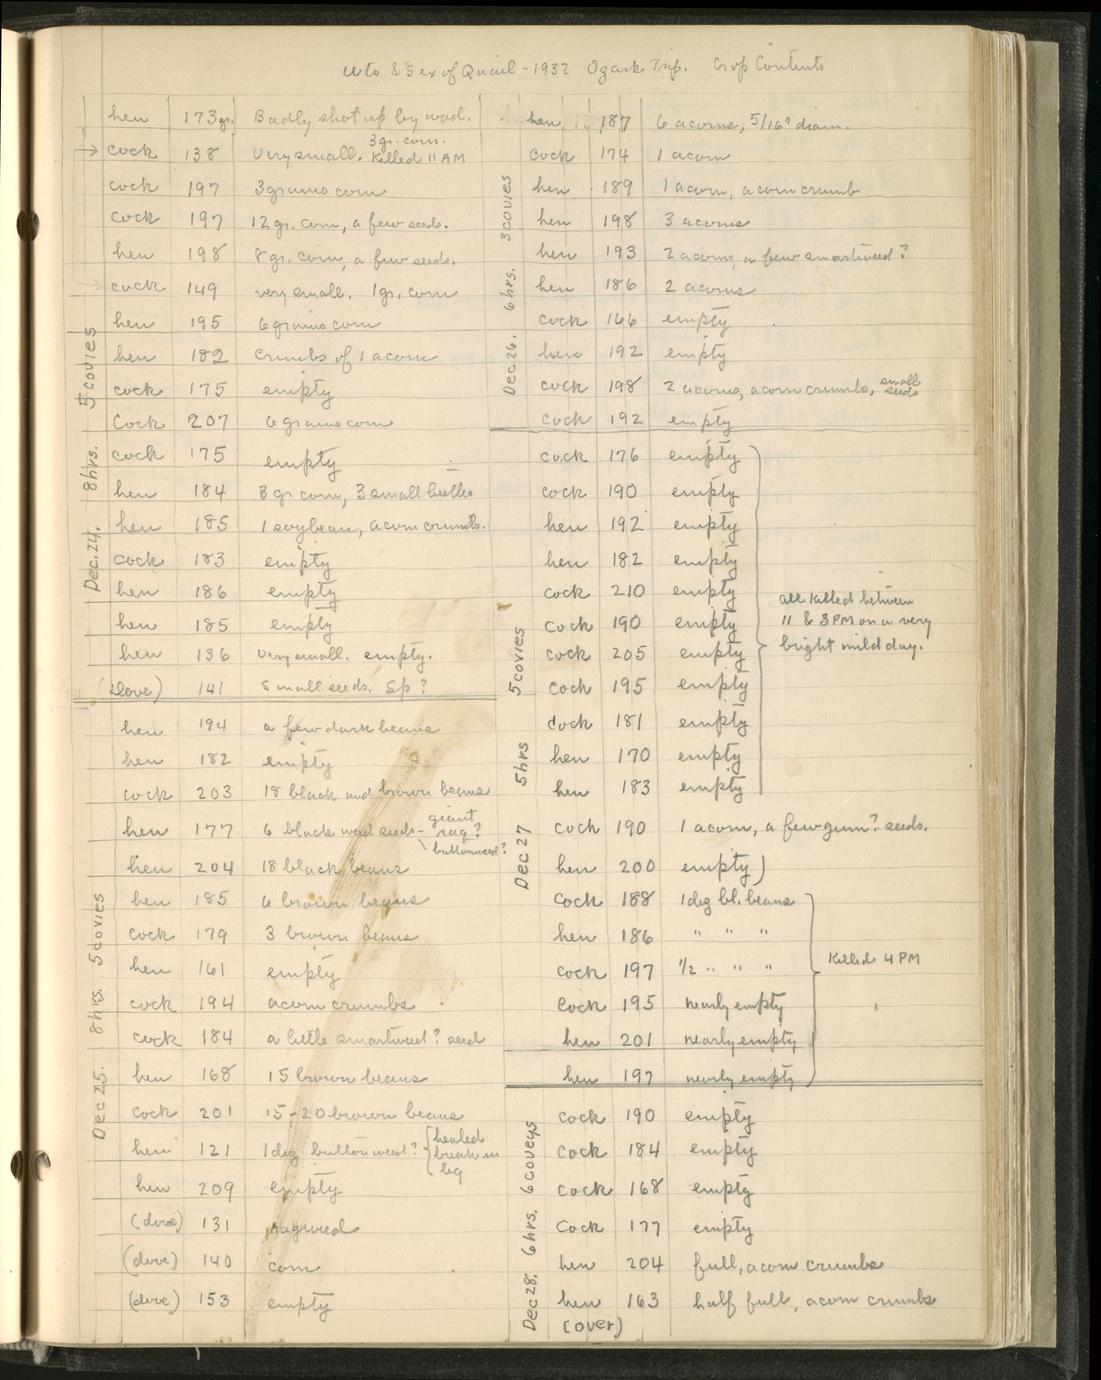 Wts & Sex of Quail - 1932 Ozark Trip. Crop Contents
Dec. 24. 8 hrs. 5 covies
hen 173 gr. Badly shot up by wad.
cock 138 Very small. 3 gr. corn. Killed 11 AM
cock 197 3 grains corn
cock 197 12 gr. corn, a few seeds.
hen 198 8 gr. corn, a few seeds.
cock 149 very small. 1 gr. corn
hen 195 6 grains corn
hen 182 crumbs of 1 acorn
cock 175 empty
Cock 207 6 grains corn
cock 175 empty
hen 184 8 gr corn, 3 small beetles
hen 185 1 soybean, acorn crumbs.
cock 183 empty
hen 186 empty
hen 185 empty
hen 136 very small. empty.
(Dove) 141 small seeds. Sp?
Dec 25. 8 hrs. 5 covies
hen 194 a few dark beans
hen 182 empty
cock 203 18 black and brown beans
hen 177 6 black weed seeds - giant rag? buttonweed?
hen 204 18 black beans
hen 185 6 brown beans
cock 179 3 brown beans
hen 161 empty
cock 194 acorn crumbs
cock 184 a little smartweed? seed
hen 168 15 brown beans
cock 201 15-20 brown beans
hen 121 1 dog buttonweed? { healed break in leg
hen 209 empty
(dove) 131 ragweed
(dove) 140 corn
(dove) 153 empty
Dec 26. 6 hrs. 3 covies
hen 187 6 acorns, 5/16" diam.
cock 174 1 acorn
hen 189 1 acorn, acorn crumb
hen 198 3 acorns
hen 193 2 acorns, a few smartweed?
hen 186 2 acorns
cock 166 empty
hen 192 empty
cock 198 2 acorns, acorn crumbs, small seeds
cock 192 empty
Dec 27 5 hrs 5 covies
cock 176 empty
cock 190 empty
hen 192 empty
hen 182 empty
cock 210 empty
cock 190 empty
cock 205 empty
cock 195 empty
cock 181 empty
hen 170 empty
hen 183 empty
all killed between
11 & 3 PM on a very
bright mild day.
cock 190 1 acorn, a few gum? seeds.
hen 200 empty)
cock 188 1 dog bl. beans
hen 186 " " "
cock 197 1/2 " " "
cock 195 nearly empty
hen 201 nearly empty
hen 197 nearly empty
Killed 4 PM
Dec 28. 6 hrs. 6 coveys
cock 190 empty
cock 184 empty
cock 168 empty
cock 177 empty
hen 204 full, acorn crumbs
hen 163 half full, acorn crumbs
(over)